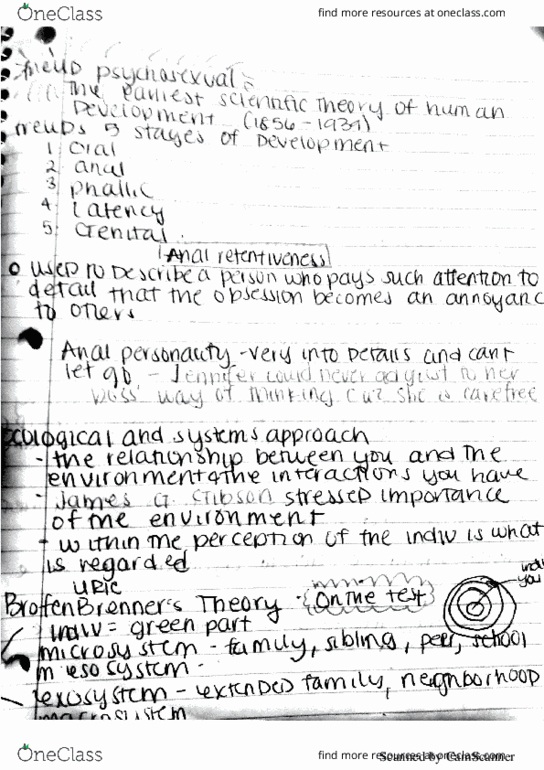 OneClass
find more resources at oneclass.com
Freud psychosexual:
The earliest scientific Theory of human
Development (1856-1939)
Freuds 5 stages of Development
1 Oral
2 anal
3 phallic
4 Latency
5 Genital
Anal retentiveness
used to describe a person who pays such attention to
detail that the obsession becomes an annoyanc
to others
Anal personality - very into Details and cant
let go - Jennifer could never adjust to her
boss' way of thinking cuz she is carefree
Ecological and systems approach
- the relationship between you and the
environment & the interactions you have
- James G. Gibson stressed importance
of the environment
- within the perception of the indiv is what
is regarded
indi
you
uric
BroffenBrenner's Theory - On the test
indiv = green part
microsystem - family, sibling, peer, school
mesosystem -
exosystem - extended family, neighborhood
macrosystem
OneClass
find more resources at oneclass.com
Scanned by CamScanner